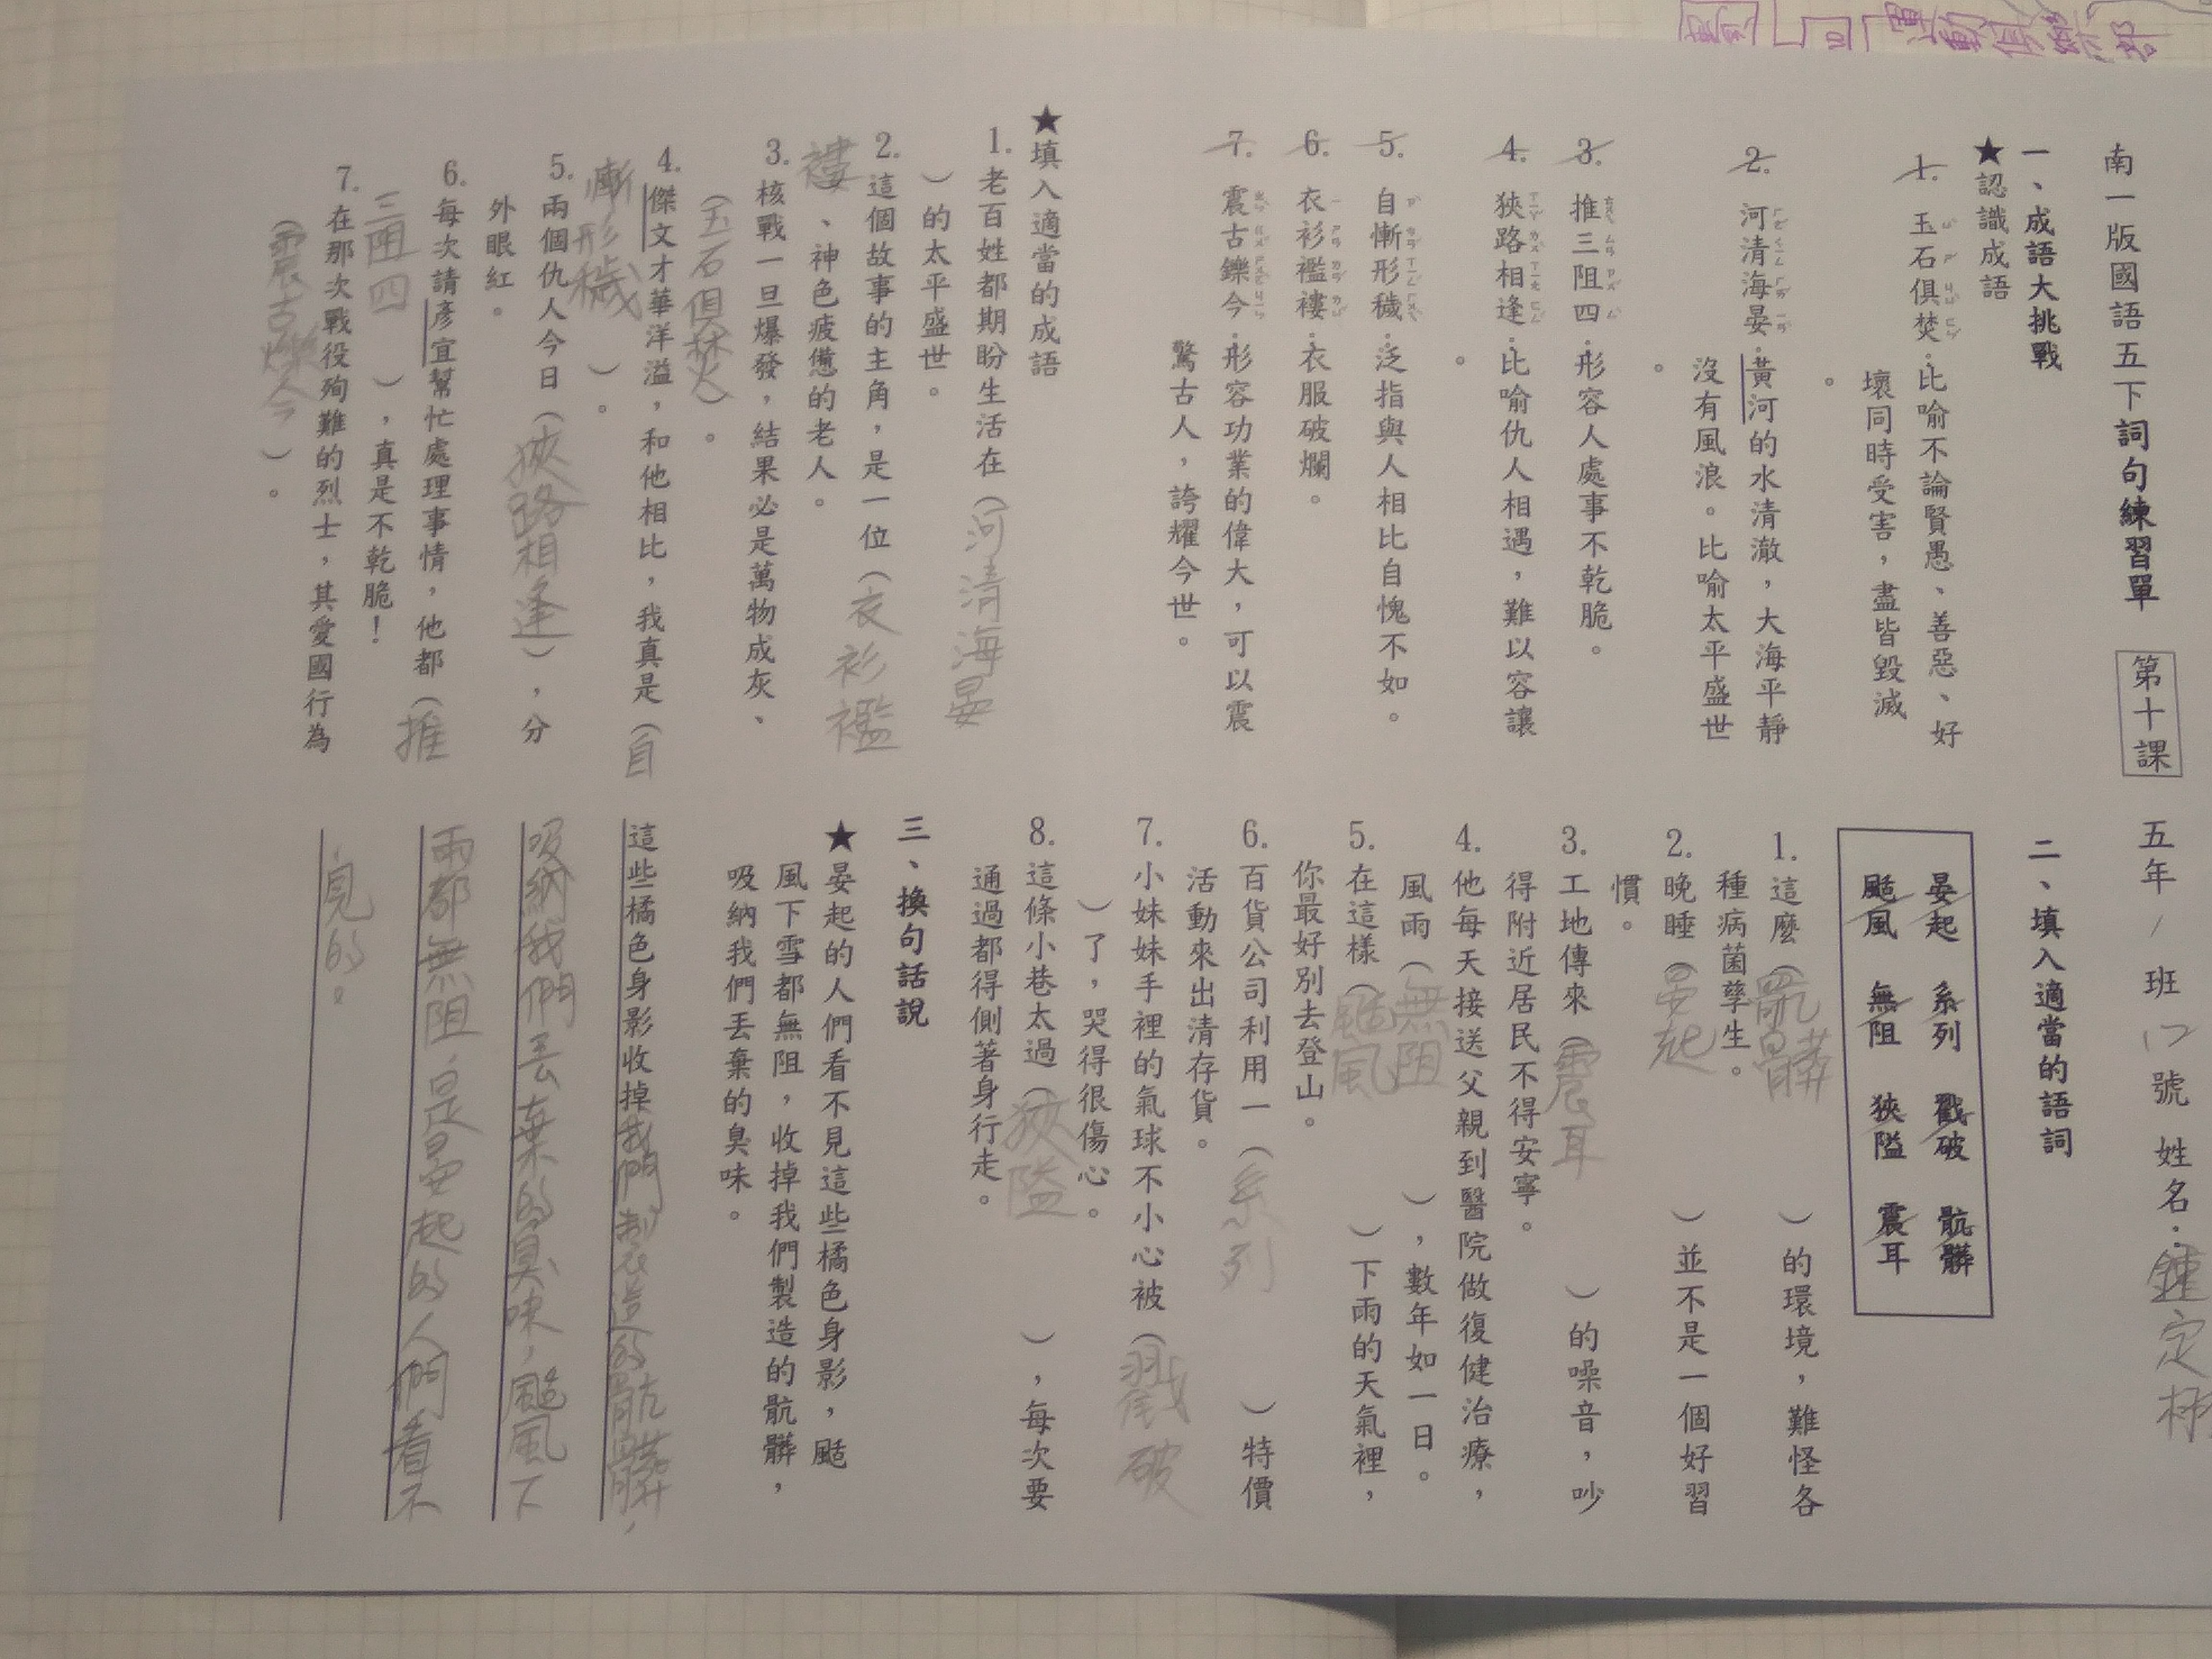 南一版國語五下詞句練習單 第十課 五年 1 班 17 號 姓名：鍾定
一、成語大挑戰
★認識成語
1. 玉石俱焚：比喻不論賢愚、善惡、好
壞同時受害，盡皆毀滅
。
2. 河清海晏：黃河的水清澈，大海平靜
沒有風浪。比喻太平盛世
。
3. 推三阻四：形容人處事不乾脆。
4. 狹路相逢：比喻仇人相遇，難以容讓
。
5. 自慚形穢：泛指與人相比自愧不如。
6. 衣衫襤褸：衣服破爛。
7. 震古鑠今：形容功業的偉大，可以震
驚古人，誇耀今世。
★填入適當的成語
1. 老百姓都期盼生活在（河清海晏
）的太平盛世。
2. 這個故事的主角，是一位（衣衫襤
褸、神色疲憊的老人。
3. 核戰一旦爆發，結果必是萬物成灰、
（玉石俱焚）。
4. 傑文才華洋溢，和他相比，我真是（自
慚形穢）。
5. 兩個仇人今日（狹路相逢），分
外眼紅。
6. 每次請彥宜幫忙處理事情，他都（推
三阻四），真是不乾脆！
7. 在那次戰役殉難的烈士，其愛國行為
（震古爍今）。
二、填入適當的語詞
晏起 系列 戳破 骯髒
颳風 無阻 狹隘 震耳
1. 這麼（骯髒）的環境，難怪各
種病菌孳生。
2. 晚睡（晏起）並不是一個好習
慣。
3. 工地傳來（震耳）的噪音，吵
得附近居民不得安寧。
4. 他每天接送父親到醫院做復健治療，
風雨（無阻），數年如一日。
5. 在這樣（颳風）下雨的天氣裡，
你最好別去登山。
6. 百貨公司利用一（系列）特價
活動來出清存貨。
7. 小妹妹手裡的氣球不小心被（戳破
）了，哭得很傷心。
8. 這條小巷太過（狹隘），每次要
通過都得側著身行走。
三、換句話說
★晏起的人們看不見這些橘色身影，颳
風下雪都無阻，收掉我們製造的骯髒，
吸納我們丟棄的臭味。
這些橘色身影收掉我們製造的骯髒，
吸納我們丟棄的臭味，颳風下
雨都無阻，是晏起的人們看不
見的。